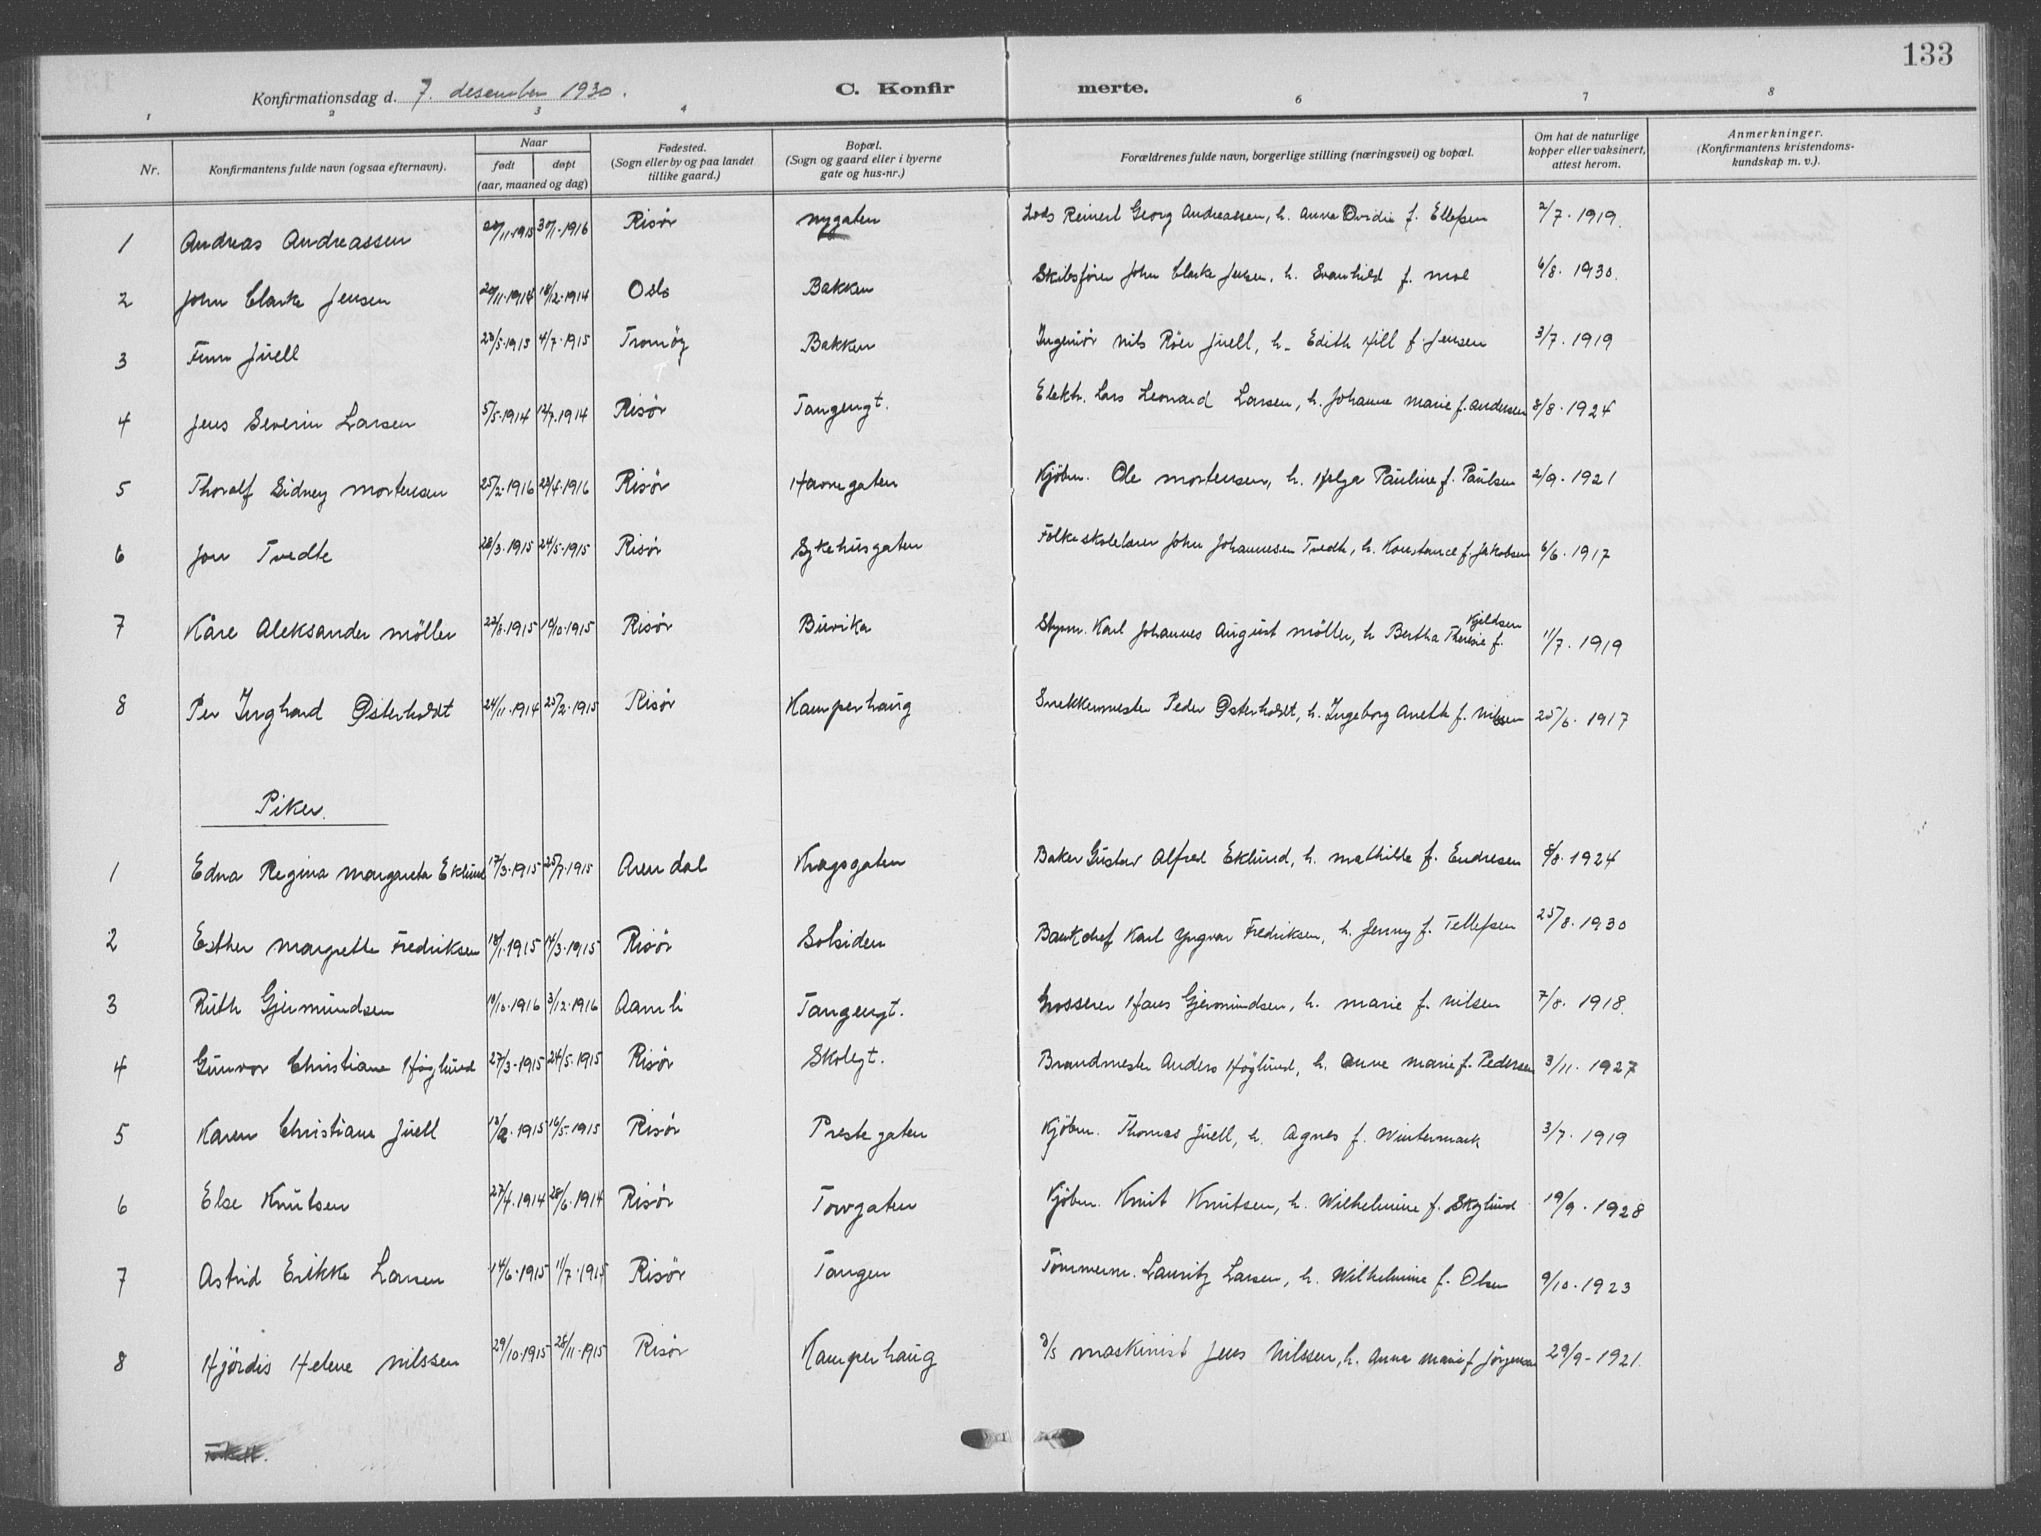 133
Konfirmationsdag d. 7. desember 1930.
C. Konfirmerte.
1 2 3 4 6 7 8
Nr. Konfirmantens fulde navn (ogsaa efternavn). Naar født døpt (aar, maaned og dag) Fødested. (Sogn eller by og paa landet tillike gaard.) Bopæl. (Sogn og gaard eller i byerne gate og hus-nr.) Forældrenes fulde navn, borgerlige stilling (næringsvei) og bopæl. Om hat de naturlige kopper eller vaksinert, attest herom. Anmerkninger. (Konfirmantens kristendoms-kundskap m. v.).
1 Andreas Andreassen 20/11.1915 30/1.1916 Risör nygaten Lods Reinert Georg Andreassen, h. Anna Ovidie f. Ellefsen 2/7. 1919.
2 John Clarke Jensen 18/12.1914 Oslo Bakken Skibsfører John Clarke Jensen, h. Svanhild f. moe 6/8. 1930.
3 Finn Juell 23/5.1915 4/7.1915 Tromöy Bakken Ingeniör Nils Röer Juell, h. Edith Hill f. Jensen 3/7. 1919
4 Jens Severin Larsen 5/5.1914 12/7.1914 Risör Tangengt. Elektr. Lars Leonard Larsen, h. Johanne Marie f. Andersen 8/8. 1924
5 Thoralf Sidney Mortensen 25/2.1916 23/4.1916 Risör Havnegaten Kjöbm. Ole Mortensen, h. Helga Pauline f. Paulsen 2/9. 1921
6 Jon Tvedte 28/3.1915 24/5.1915 Risör Sykehusgaten Folkeskolelærer John Johannesen Tvedte, h. Konstance f. Jakobsen 6/6. 1917
7 Kåre Aleksander Möller 22/8.1915 10/10.1915 Risör Buvika Styrm. Karl Johannes August Möller, h. Bertha Theresie f. Kjeldsen 11/7. 1919
8 Per Inghard Østerholdt 24/11.1914 25/2.1915 Risör Kamperhaug Snekkermester Peder Østerholdt, h. Ingeborg Anette f. Nilssen 25/6. 1917
Piker.
1 Edna Regina Margareta Eklund 17/3.1915 25/7.1915 Arendal Kragsgaten Baker Gustav Alfred Eklund, h. Mathilde f. Endresen 8/8. 1924
2 Esther Margrethe Fredriksen 18/1.1915 14/3.1915 Risör Solsiden Bankchef Karl Yngvar Fredriksen, h. Jenny f. Tellefsen 25/8. 1930
3 Ruth Gjermundsen 10/10.1916 3/12.1916 Aamli Tangengt. Grosserer Hans Gjermundsen, h. Marie f. Nilsen 7/8. 1918.
4 Gunvor Christiane Höglund 27/3.1915 24/5.1915 Risör Skolegt. Brandmester Anders Höglund, h. Anne Marie f. Pedersen 3/11. 1927
5 Karen Christiane Juell 13/2.1915 16/5.1915 Risör Prestegaten Kjöbm. Thomas Juell, h. Agnes f. Wintermark 3/7. 1919
6 Else Knutsen 27/4.1914 28/6.1914 Risör Torvgaten Kjöbm. Knut Knutsen, h. Wilhelmine f. Skoglund 19/9. 1928
7 Astrid Erikke Larsen 14/6.1915 11/7.1915 Risör Tangen Tömmerm. Lauritz Larsen, h. Wilhelmine f. Olsen 9/10. 1923
8 Hjördis Helene Nilssen 29/10.1915 28/11.1915 Risör Kamperhaug D/S maskinist Jens Nilssen, h. Anna Marie f. Jörgensen 29/9-1921.